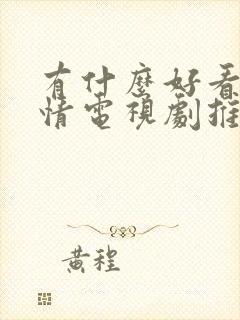 有什麼好看
情電視劇推
黃程